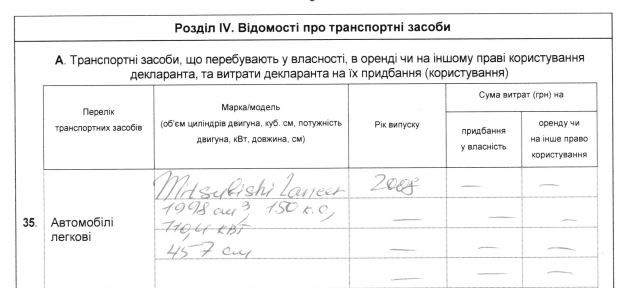 Розділ IV. Відомості про транспортні засоби
А. Транспортні засоби, що перебувають у власності, в оренді чи на іншому праві користування
декларанта, та витрати декларанта на їх придбання (користування)
Перелік
транспортних засобів
Марка/модель
(об'єм циліндрів двигуна, куб. см, потужність
двигуна, кВт, довжина, см)
Рік випуску
Сума витрат (грн) на
придбання
у власність
оренду чи
на інше право
користування
35.
Автомобілі
легкові
Mitsubishi Lancer
2008
— —
1998 см³, 150 к.с,
— — —
110,4 кВт
— — —
457 см
— — —